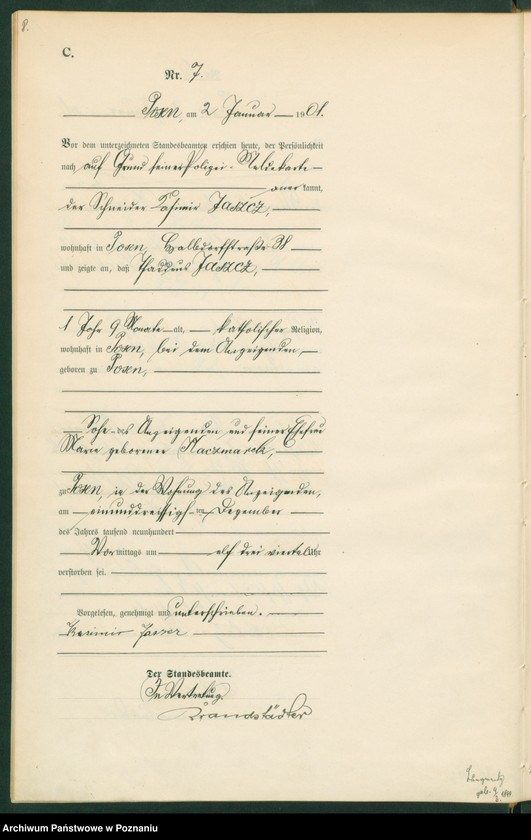 8.
C.
Nr. 7.
Posen, am 2 Januar 1901.
Vor dem unterzeichneten Standesbeamten erschien heute, der Persönlichkeit
nach auf Grund seiner Polizei-Meldekarte
anerkannt,
der Schneider Kasimir Jaszcz,
wohnhaft in Posen, Halbdorfstraße
und zeigte an, daß Thaddeus Jaszcz,
1 Jahr 9 Monate alt, katholischer Religion,
wohnhaft in Posen, bei dem Anzeigenden,
geboren zu Posen,
Sohn des Anzeigenden und seiner Ehefrau
Maria geborener Kaczmarek,
zu Posen, in der Wohnung des Anzeigenden,
am einunddreißigsten Dezember
des Jahres tausend neunhundert
Vormittags um elf drei viertel Uhr
verstorben sei.
Vorgelesen, genehmigt und unterschrieben.
Kazimir
Der Standesbeamte.
In Vertretung.
Brandstädter
geb.
Archiwum Państwowe w Poznaniu